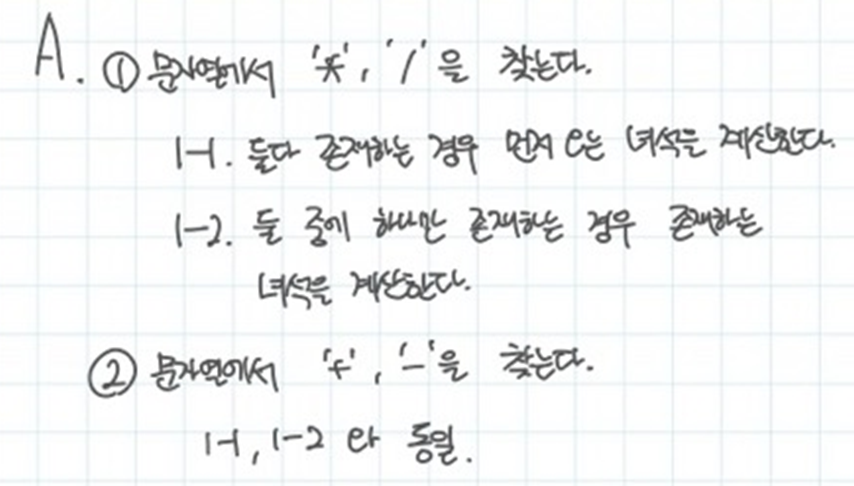 A. ① 문자열에서 '*', '/'을 찾는다.
1-1. 둘다 존재하는 경우 먼저 오는 녀석을 계산한다.
1-2. 둘 중에 하나만 존재하는 경우 존재하는
녀석을 계산한다.
② 문자열에서 '+', '-'을 찾는다.
1-1, 1-2 와 동일.